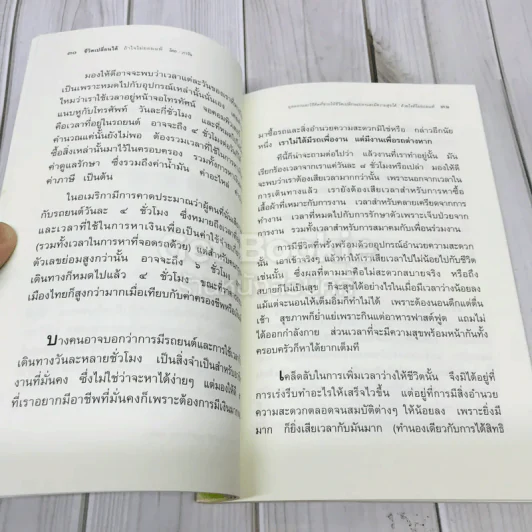 ๓๐ ชีวิตเปลี่ยนได้
มองให้ดีอาจจะพบว่าเวลาแต่ละวันของเรา
เป็นเพราะหมดไปกับอุปกรณ์เหล่านั้นนั่นเอง
ไหมว่าเราใช้เวลาอยู่หน้าจอโทรทัศน์
แนบหูกับโทรศัพท์ วันละกี่ชั่วโมง
คือเวลาที่อยู่ในรถยนต์ อาจจะถึง ๔ ชั่วโมง
คำนวณแค่นั้นยังไม่พอ ต้องรวมเวลาที่
ซื้อสิ่งเหล่านั้นมาไว้ในครอบครอง รวมทั้ง
ค่าดูแลรักษา ซึ่งรวมถึงค่าน้ำมัน ค่าอะไหล่
ค่าภาษี เป็นต้น
ในอเมริกามีการคาดประมาณว่าผู้คน
กับรถยนต์วันละ ๔ ชั่วโมง ซึ่งหมายถึงเวลา
และเวลาที่ใช้ในการหาเงินเพื่อเป็นค่าใช้จ่าย
(รวมทั้งเวลาในการหาที่จอดรถด้วย) แต่สำหรับ
ตัวเลขย่อมสูงกว่านั้น อาจจะถึง
เดินทางก็หมดไปแล้ว ๔ ชั่วโมง
เมืองไทยก็สูงกว่ามากเมื่อเทียบกับค่าครองชีพ
บางคนอาจบอกว่าการมีรถยนต์และการใช้เวลา
เดินทางวันละหลายชั่วโมง เป็นสิ่งจำเป็นสำหรับ
งานที่มั่นคง ซึ่งไม่ใช่ว่าจะหาได้ง่ายๆ แต่มองให้ดี
ที่เราอยากมีอาชีพที่มั่นคงก็เพราะต้องการมีเงินมาก
๓๑
มาซื้อรถและสิ่งอำนวยความสะดวกมิใช่หรือ กล่าวอีกนัย
หนึ่ง เราไม่ได้มีรถเพื่องาน แต่มีงานเพื่อรถต่างหาก
ทีนี้ก็น่าจะถามต่อไปว่า แล้วงานที่เราทำอยู่นั้น มัน
เรียกร้องเวลาจากเราแค่วันละ ๘ ชั่วโมงหรือเปล่า มองให้ดี
จะพบว่าเราต้องเสียเวลามากกว่านั้น เพราะนอกจากเวลาใน
การเดินทางแล้ว เรายังต้องเสียเวลาสำหรับการหาซื้อ
เสื้อผ้าที่เหมาะกับการงาน เวลาสำหรับคลายเครียดจากการ
ทำงาน เวลาที่หมดไปกับการรักษาตัวเพราะเจ็บป่วยจาก
งาน รวมทั้งเวลาสำหรับการสมาคมกับเพื่อนร่วมงาน
การมีชีวิตที่พรั่งพร้อมด้วยอุปกรณ์อำนวยความสะดวก
เอาเข้าจริงๆ แล้วทำให้เราเสียเวลาไปไม่น้อยไปกับชีวิต
เช่นนั้น ซึ่งผลที่ตามมาคือไม่สะดวกสบายจริง หรือถึง
สบายก็ไม่เป็นสุข ก็จะสุขได้อย่างไรในเมื่อมีเวลาว่างน้อยลง
แม้แต่จะนอนให้เต็มอิ่มก็ทำไม่ได้ เพราะต้องนอนดึกแต่ตื่น
เช้า สุขภาพก็ย่ำแย่เพราะกินแต่อาหารฟาสต์ฟูด แถมไม่
ได้ออกกำลังกาย ส่วนเวลาที่จะมีความสุขพร้อมหน้ากันทั้ง
ครอบครัวก็หาได้ยากเต็มที
เคล็ดลับในการเพิ่มเวลาว่างให้ชีวิตนั้น จึงมิได้อยู่ที่
การเร่งรีบทำอะไรให้เสร็จไวขึ้น แต่อยู่ที่การมีสิ่งอำนวย
ความสะดวกตลอดจนสมบัติต่างๆ ให้น้อยลง เพราะยิ่งมี
มาก ก็ยิ่งเสียเวลากับมันมาก (ทำนองเดียวกับการได้สิทธิ